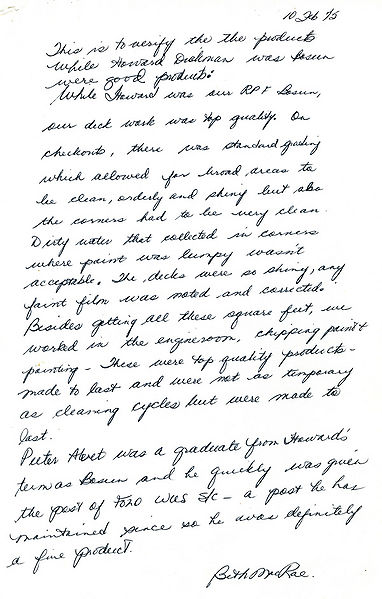 10 Feb 75
This is to verify the the products
while Howard Dickman was Bosun
were good products.
While Howard was our RPF Bosun,
our deck work was top quality. On
checkouts, there was standard grading
which allowed for broad areas to
be clean, orderly and shiny but also
the corners had to be very clean.
Dirty water that collected in corners
where paint was lumpy wasn't
acceptable. The decks were so shiny, any
faint film was noted and corrected.
Besides getting all these square feet, we
worked in the engineroom, chipping paint &
painting - These were top quality products -
made to last and were not as temporary
as cleaning cycles but were made to
last.
Pieter Alvet was a graduate from Howard's
term as Bosun and he quickly was given
the post of FOLO WUS S/C - a post he has
maintained since so he was definitely
a fine product.
Beth McRae.